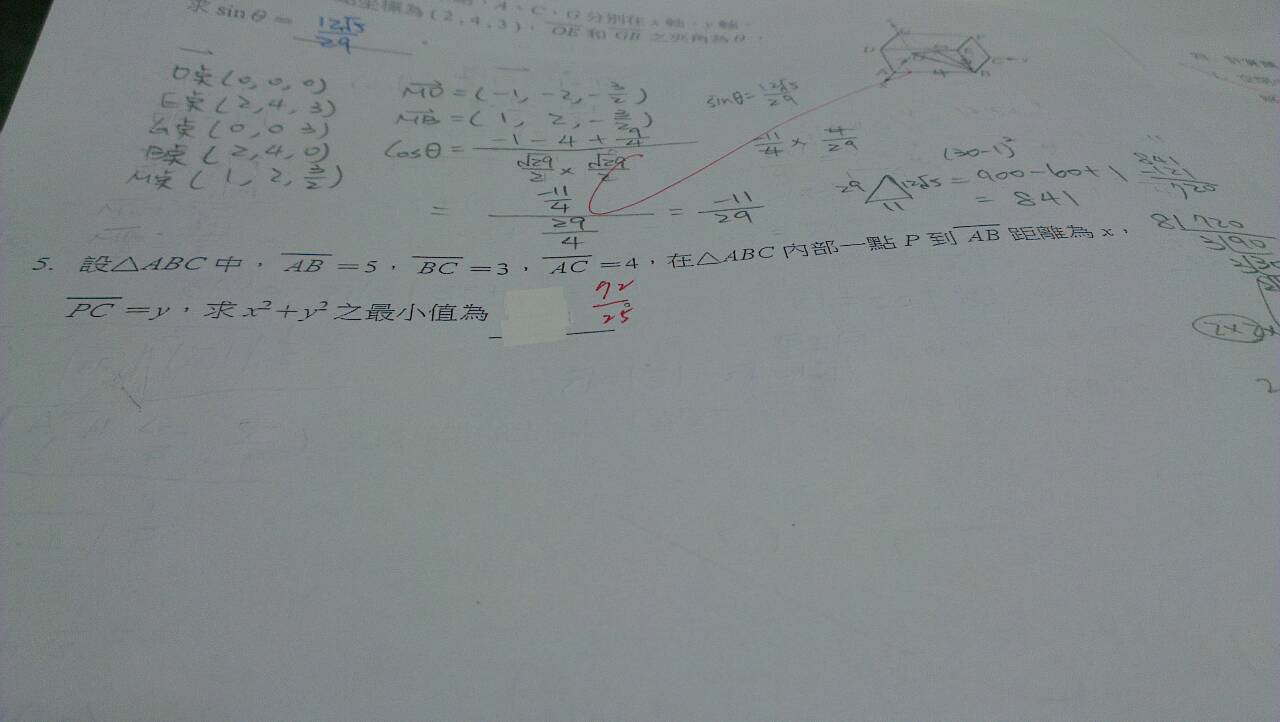 坐標為(2,4,3),A、C、G分別在x軸、y軸、
求 sinθ = 12√5/29 . OE 和 GB 之夾角為θ,
O点(0,0,0)
E点(2,4,3)
G点(0,0 3)
B点(2,4,0)
M点(1,2,3/2)
MO = (-1, -2, -3/2)
MB = (1, 2, -3/2)
cosθ = (-1-4+9/4)/(√29/2 × √29/2)
= (-11/4)/(29/4) = -11/29
sinθ = 12√5/29
-11/4 × 4/29
29 △ 12√5
11
(30-1)²
= 900-60+1
= 841
841
-121
720
8|720
3|90
5. 設△ABC 中,AB=5,BC=3,AC=4,在△ABC 內部一點 P 到 AB 距離為 x,
PC=y,求 x²+y² 之最小值為 72/25 。